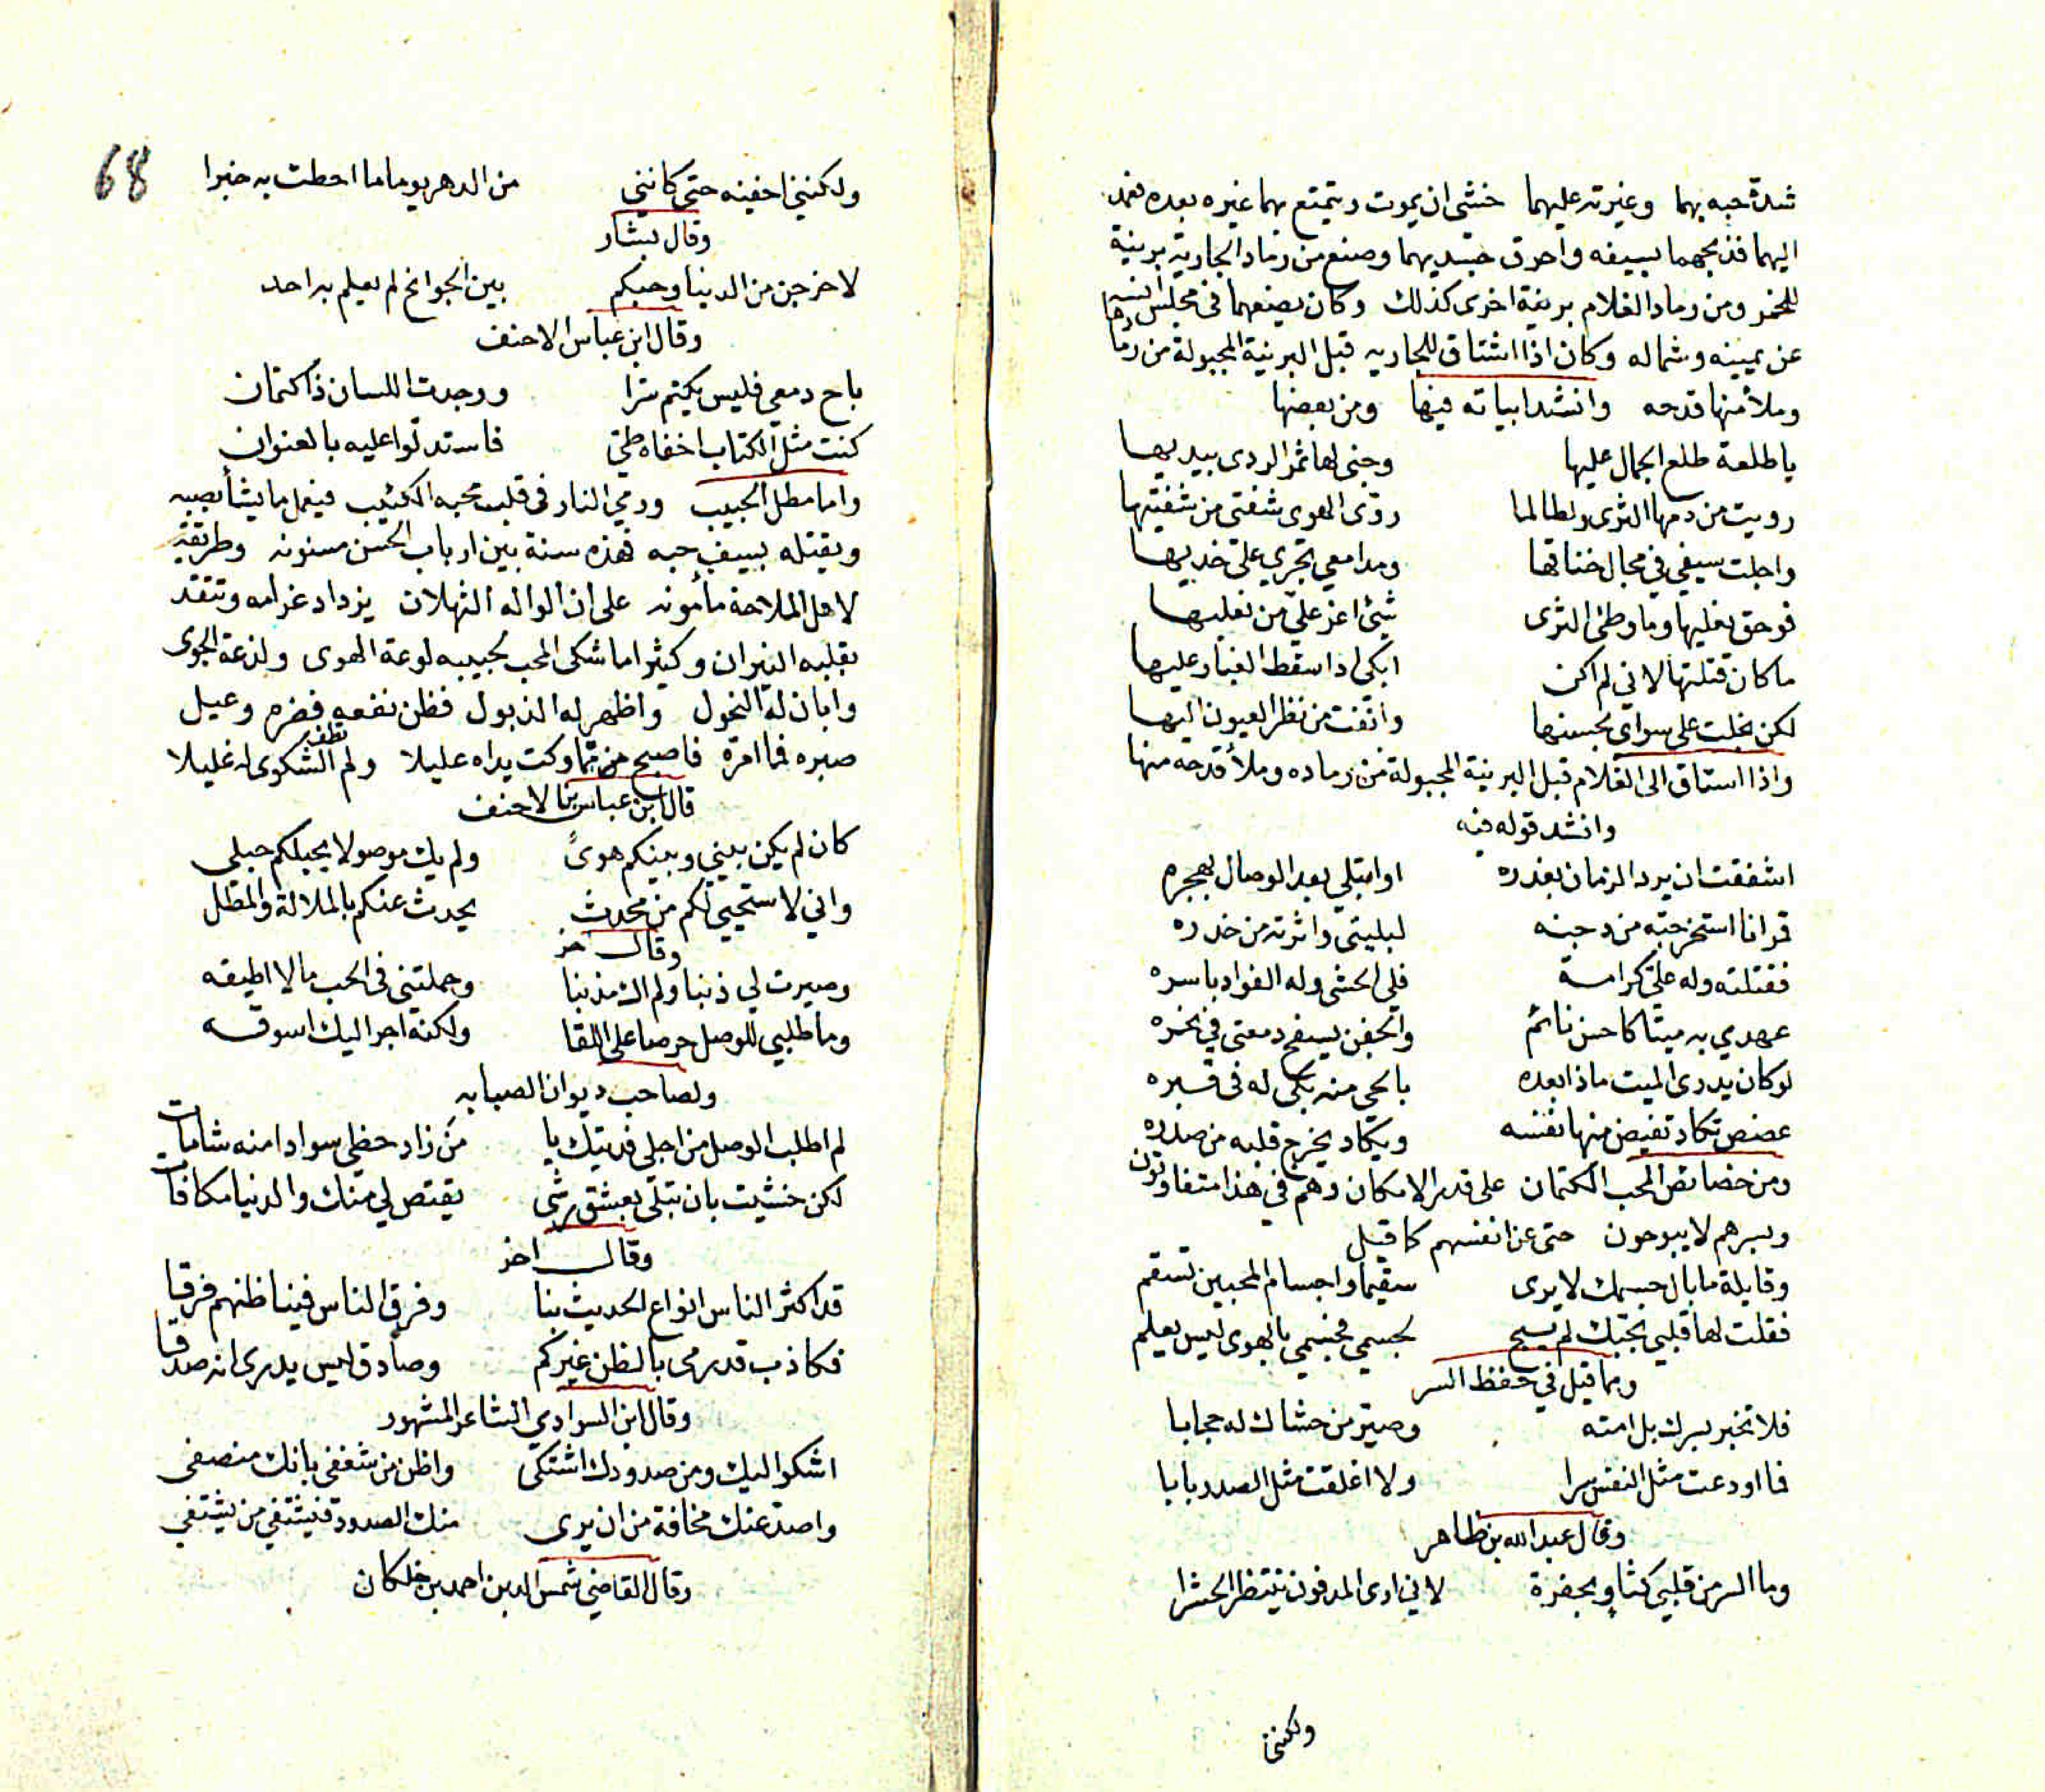 شدة حبه بهما وغيرته عليهما خشى ان يموت ويتمتع بهما غيره بعده فعمد
اليهما فذبحهما بسيفه واحرق جسديهما وصنع من رماد الجارية برنية
للخمر ومن رماد الغلام برنية اخرى كذلك وكان يضعهما في مجلس انسه
عن يمينه وشماله وكان اذا اشتاق للجاريه قبل البرنية المجبولة من رمادها
وملأ منها قدحه وانشد ابياته فيها ومن بعضها
يا طلعة طلع الجمال عليها وجنى لها ثمر الردى بيديها
رويت من دمها الثرى ولطالما روّى الهوى شفتي من شفتيها
واجلت سيفي في مجال خناقها ومدامعي تجري على خديها
فوحق نعليها وما وطئ الثرى شئ اعز عليّ من نعليها
ما كان قتلتها لاني لم اكن ابكي اذا سقط الغبار عليها
لكن بخلت على سواى بحسنها وانفت من نظر العيون اليها
واذا استاق الى الغلام قبل البرنية المجبولة من رماده وملأ قدحه منها
وانشد قوله فيه
اشفقت ان يرد الزمان بغدره او ابتلي بعد الوصال بهجره
قمر انا استخرجته من دجنه لبليتي واثرته من خدره
فقتلته وله عليّ كرامة فلي الحشى وله الفواد باسره
عهدي به ميتا كاحسن نائم والجفن يسفح دمعتى في نحره
لو كان يدرى الميت ماذا بعده بالحى منه بكى له فى قبره
غصص تكاد تفيض منها نفسه ويكاد يخرج قلبه من صدره
ومن خصائص المحب الكتمان على قدر الامكان وهم في هذا متفاوتون
وبسرهم لا يبوحون حتى عن انفسهم كما قيل
وقايلة ما بال جسمك لا يرى سقيما واجسام المحبين تسقم
فقلت لها قلبي بحبك لم يبح لجسمي فجسمي بالهوى ليس يعلم
ومما قيل في حفظ السر
فلا تخبر بسرك بل امته وصيّر من حشاك له حجابا
فما اودعت مثل النفس سرا ولا اغلقت مثل الصدر بابا
وقال عبد الله بن طاهر
وما السر من قلبي كثاو بحفرة لاني ارى المدفون ينتظر الحشرا
ولكنني
68
ولكنني اخفيه حتى كانني من الدهر يوما ما احطت به خبرا
وقال بشار
لاخرجن من الدنيا وحبكم بين الجوانح لم يعلم به احد
وقال ابن عباس الاحنف
باح دمعي فليس يكتم سرا ووجدت اللسان ذا كتمان
كنت مثل الكتاب اخفاه طيّ فاستدلوا عليه بالعنوان
واما مطل الحبيب ورمي النار فى قلب محبه الكئيب فيفعل ما يشأ بصبه
ويقتله بسيف حبه فهذه سنة بين ارباب الحسن مسنونه وطريقة
لاهل الملاحة مأمونه على ان الواله الثهلان يزداد غرامه وتتقد
بقلبه النيران وكثيرا ما شكى المحب لحبيبه لوعة الهوى ولذعة الجوى
وابان له النحول واظهر له الذبول فظن نفعه فضره وعيل
صبره فما امرّه فاصبح من ما وكت يداه عليلا ولم تطف الشكوى له غليلا
قال ابن عباس بن الاحنف
كان لم يكن بيني وبينكم هوىً ولم يك موصولا بحبلكم حبلي
واني لاستحيي لكم من محدث يحدث عنكم بالملالة والمطل
وقال اخر
وصيرت لي ذنبا ولم اك مذنبا وحملتني فى الحب ما لا اطيقه
وما طلبي للوصل حرصا على اللقا ولكنه اجر اليك اسوقه
ولصاحب ديوان الصبابه
لم اطلب الوصل من اجلي فديتك يا من زاد حظي سوادا منه شامات
لكن خشيت بان تبلى بعشق رشى يقتص لي منك والدنيا مكافات
وقال اخر
قد اكثر الناس انواع الحديث بنا وفرق الناس فينا ظنهم فرقا
فكاذب قد رمى بالظن غيركم وصادق ليس يدرى انه صدقا
وقال ابن السوادي الشاعر المشهور
اشكوا اليك ومن صدودك اشتكى واظن من شغفي بانك منصفى
واصدّ عنك مخافة من ان يرى منك الصدود فيشتفي من يشتفي
وقال القاضي شمس الدين احمد بن خلكان